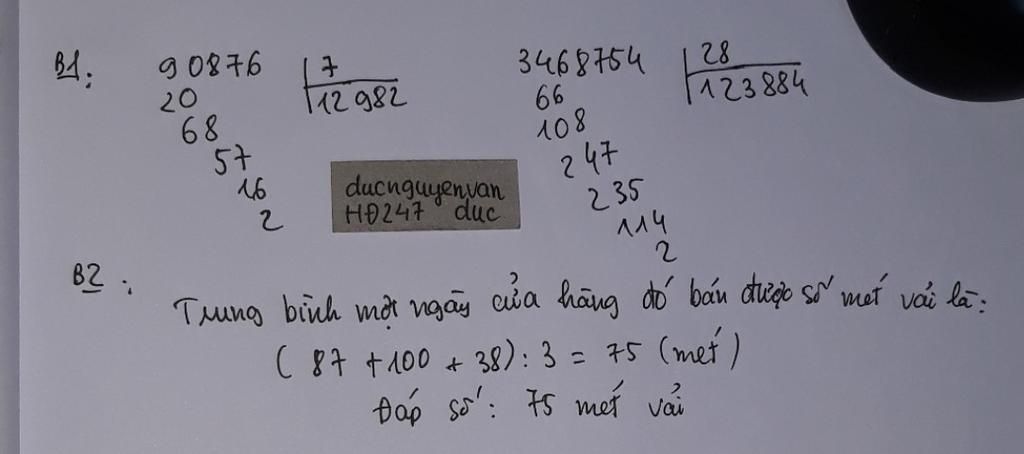 B1: 90876 7
20 12982
68
57
16
2
3468754 28
66 123884
108
247
235
114
2
ducnguyenvan
HĐ247 duc
B2:
Trung bình một ngày cửa hàng đó bán được số mét vải là:
( 87 + 100 + 38) : 3 = 75 (mét)
Đáp số: 75 mét vải